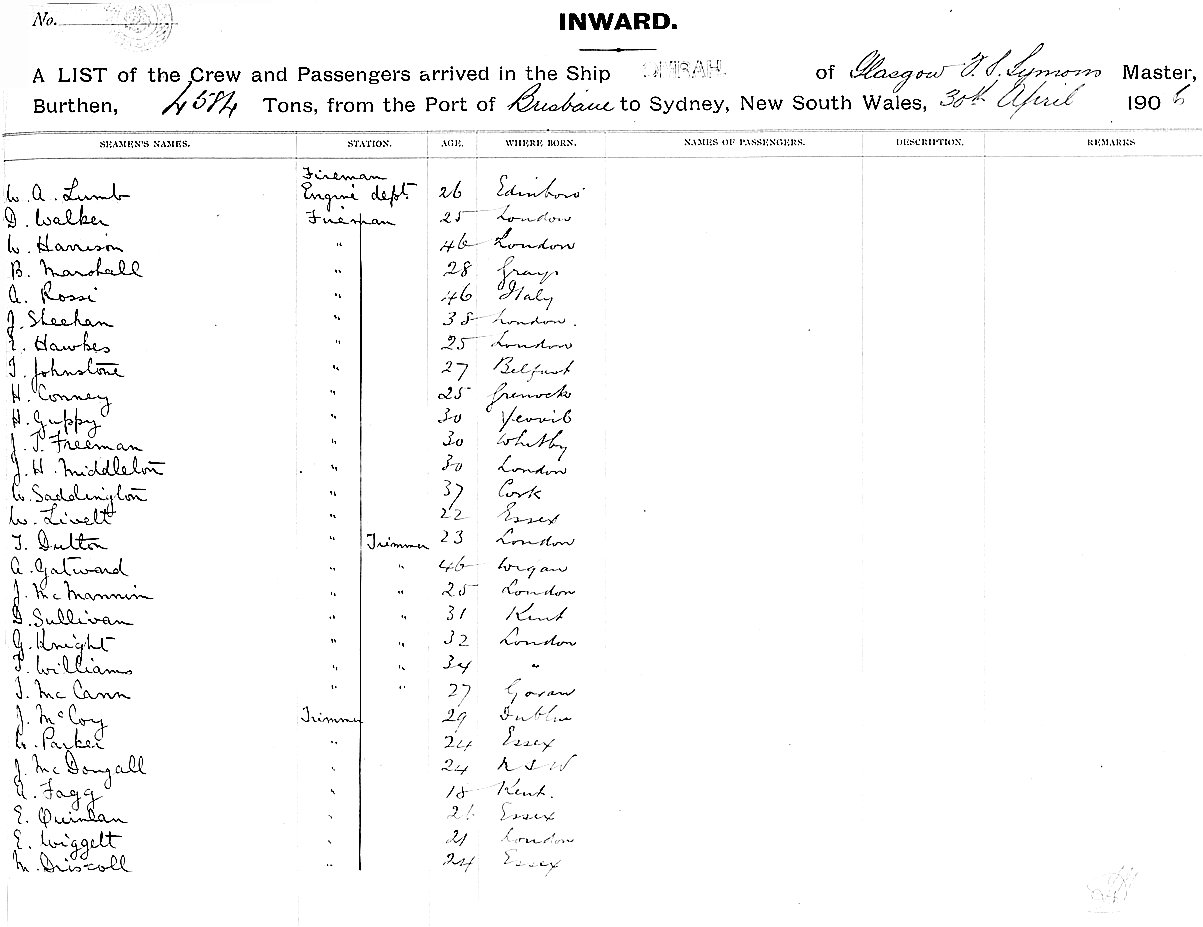 No.
INWARD.
A LIST of the Crew and Passengers arrived in the Ship OMRAH. of Glasgow Symons Master,
Burthen, 4584 Tons, from the Port of Brisbane to Sydney, New South Wales, 30th April 1906
SEAMEN'S NAMES. STATION. AGE. WHERE BORN. NAMES OF PASSENGERS. DESCRIPTION. REMARKS
Fireman
W. A. Lumb Engine dept. 26 Edinboro'
D. Walker Fireman 25 London
W. Harrison " 46 London
B. Marshall " 28 Grays
A. Rossi " 46 Italy
J. Sheehan " 38 London.
E. Hawkes " 25 London
T. Johnstone " 27 Belfast
H. Conney " 25 Grenock
H. Guppy " 30 Yeovil
J. T. Freeman " 30 Whitby
J. H. Middleton " 30 London
W. Saddington " 37 Cork
W. Livett " 22 Essex
T. Dutton " Trimmer 23 London
A. Gatward " " 46 Wigan
J. McMannim " " 25 London
D. Sullivan " " 31 Kent
G. Knight " " 32 London
F. Williams " " 34 "
J. McCann " " 27 Govan
J. McCoy Trimmer 29 Dublin
W. Parker " 24 Essex
J. McDougall " 24 NSW
Fagg " 18 Kent.
E. Quinlan " 26 Essex
E. Wiggett " 21 London
M. Driscoll " 24 Essex